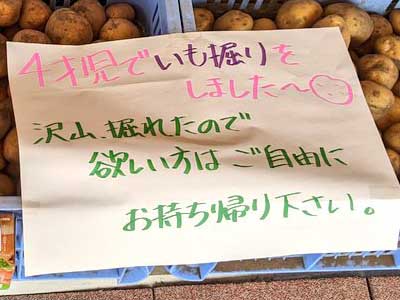 4才児でいも掘りを
しました〜
沢山、掘れたので
欲しい方は ご自由に
お持ち帰り下さい。